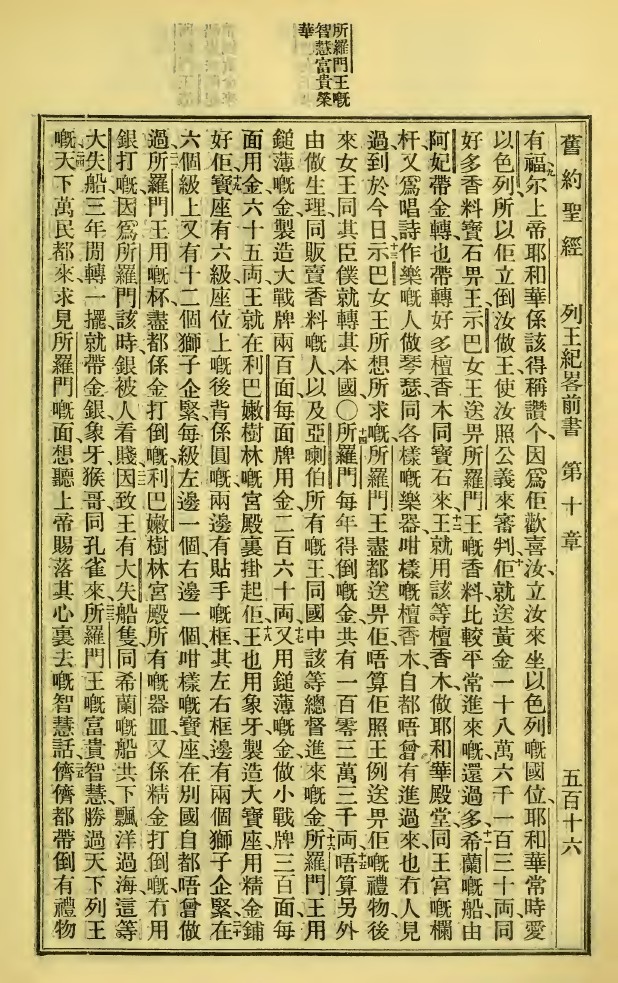 所羅門王嘅
智慧富貴榮
華
舊約聖經 列王紀畧前書 第十章 五百十六
有福九尔上帝耶和華係該得稱讚个因爲佢歡喜汝、立汝來坐以色列嘅國位、耶和華常時愛
以色列所以佢立倒汝做王使汝照公義來審判、十佢就送黃金一十八萬六千一百三十両同
好多香料寶石畀王示巴女王送畀所羅門王嘅香料比較平常進來嘅還過多、十一希蘭嘅船由
阿妃帶金轉也帶轉好多檀香木同寶石來、十二王就用該等檀香木做耶和華殿堂同王宮嘅欄
杆、又爲唱詩作樂嘅人做琴瑟同各樣嘅樂器咁樣嘅檀香木自都唔曾有進過來也冇人見
過到於今日、十三示巴女王所想所求嘅所羅門王盡都送畀佢唔算佢照王例送畀佢嘅禮物後
來女王同其臣僕就轉其本國〇十四所羅門每年得倒嘅金共有一百零三萬三千両、十五唔算另外
由做生理同販賣香料嘅人以及亞喇伯所有嘅王同國中該等總督進來嘅金、十六所羅門王用
鎚薄嘅金製造大戰牌兩百面每面牌用金二百六十両、十七又用鎚薄嘅金做小戰牌三百面、每
面用金六十五両王就在利巴嫩樹林嘅宮殿裏掛起佢、十八王也用象牙製造大寶座用精金鋪
好佢、十九寶座有六級座位上嘅後背係圓嘅、兩邊有貼手嘅框其左右框邊有兩個獅子企緊、二十在
六個級上又有十二個獅子企緊、每級左邊一個右邊一個、咁樣嘅寶座、在別國自都唔曾做
過、二一所羅門王用嘅杯、盡都係金打倒嘅、利巴嫩樹林宮殿所有嘅器皿又係精金打倒嘅、冇用
銀打嘅因爲所羅門該時銀被人看賤、二二因致王有大失船隻同希蘭嘅船共下飄洋過海這等
大失船三年間轉一擺、就帶金銀象牙猴哥同孔雀來、二三所羅門王嘅富貴智慧勝過天下列王
嘅、二四天下萬民都來求見所羅門嘅面想聽上帝賜落其心裏去嘅智慧話、二五儕儕都帶倒有禮物